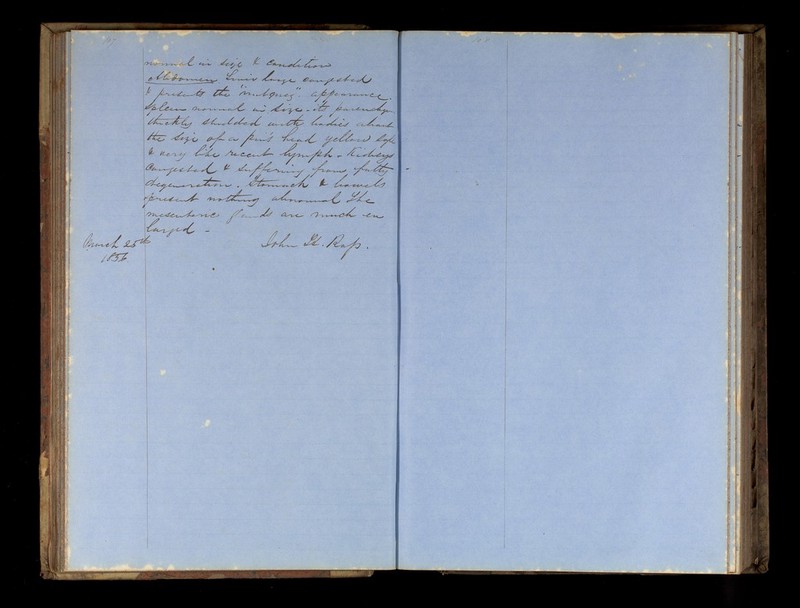 normal in size & condition
Abdomen. Liver large congested
& presents the "nutmeg" appearance
Spleen normal in size. Its parenchy-
thickly studded with bodies about
the size of a pin's head yellow soft
& very like recent lymph. Kidneys
congested & suffering from fatty
degeneration. Stomach & bowels
present nothing abnormal The
mesenteric glands are much en
larged -
March 25th John H. Rap.
1856